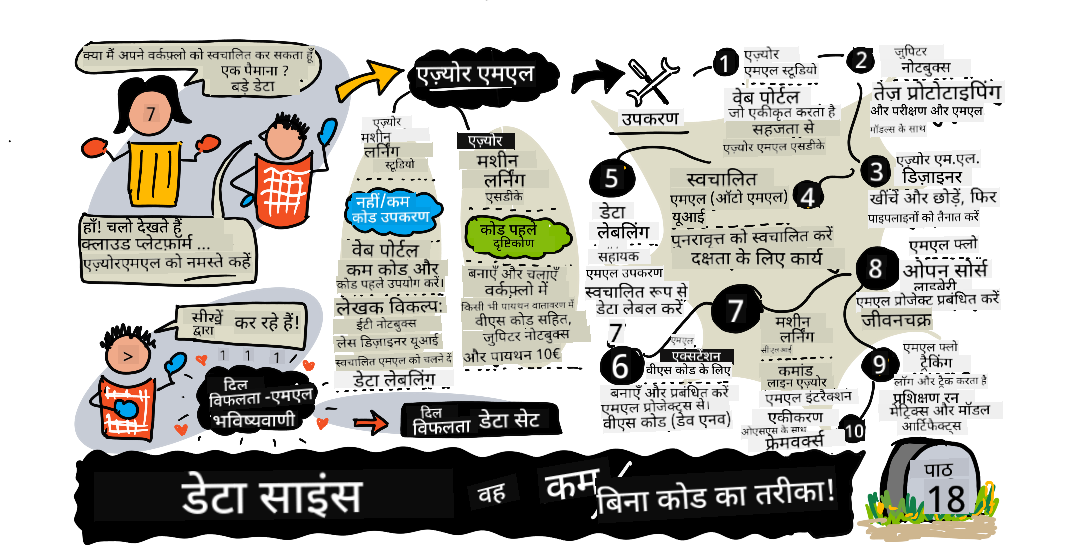 क्या मैं अपने वर्कफ़्लो को स्वचालित कर सकता हूँ
एक पैमाना ?
बड़े डेटा
7
हाँ! चलो देखते हैं
क्लाउड प्लेटफ़ॉर्म ...
एज़्योरएमएल को नमस्ते कहें
सीखें
द्वारा
कर रहे हैं!
>
1 1 1
दिल
विफलता -एमएल
भविष्यवाणी
दिल
विफलता डेटा सेट
एज़्योर एमएल
एज़्योर
मशीन
लर्निंग
स्टूडियो
नहीं/कम
कोड उपकरण
वेब पोर्टल
कम कोड और
कोड पहले उपयोग करें।
लेखक विकल्प:
ईटी नोटबुक्स
लेस डिज़ाइनर यूआई
स्वचालित एमएल को चलने दें
डेटा लेबलिंग
एज़्योर
मशीन
लर्निंग
एसडीके
कोड पहले
दृष्टिकोण
बनाएँ और चलाएँ
वर्कफ़्लो में
किसी भी पायथन वातावरण में
वीएस कोड सहित,
जुपिटर नोटबुक्स
और पायथन 10€
उपकरण
1
एज़्योर
एमएल स्टूडियो
वेब पोर्टल
जो एकीकृत करता है
सहजता से
एज़्योर एमएल एसडीके
2
जुपिटर
नोटबुक्स
तेज़ प्रोटोटाइपिंग
और परीक्षण और एमएल
मॉडल्स के साथ
3
एज़्योर एम.एल.
डिज़ाइनर
खींचें और छोड़ें, फिर
पाइपलाइनों को तैनात करें
4
स्वचालित
एमएल (ऑटो एमएल)
यूआई
पुनरावृत्त को स्वचालित करें
दक्षता के लिए कार्य
5
डेटा
लेबलिंग
सहायक
एमएल उपकरण
स्वचालित रूप से
डेटा लेबल करें
7
6
एमएल
एक्सटेंशन
वीएस कोड के लिए
बनाएँ और प्रबंधित करें
एमएल प्रोजेक्ट्स से।
वीएस कोड (डेव एनव)
7
मशीन
लर्निंग
सीएलआई
कमांड
लाइन एज़्योर
एमएल इंटरैक्शन
एकीकरण
ओएसएस के साथ
फ्रेमवर्क्स
8
एमएल फ्लो
ओपन सोर्स
लाइब्रेरी
एमएल प्रोजेक्ट प्रबंधित करें
जीवनचक्र
9
एमएल फ्लो
ट्रैकिंग
लॉग और ट्रैक करता है
प्रशिक्षण रन
मेट्रिक्स और मॉडल
आर्टिफैक्ट्स
10
डेटा साइंस वह कम/बिना कोड का तरीका!
पाठ
18